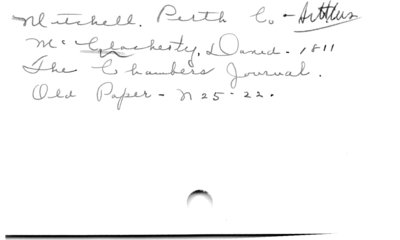 Mitchell. Perth Co - Settlers
Mc Glashesty, David - 1811
The Chambers Journal.
Old Paper - N 25 - 22.